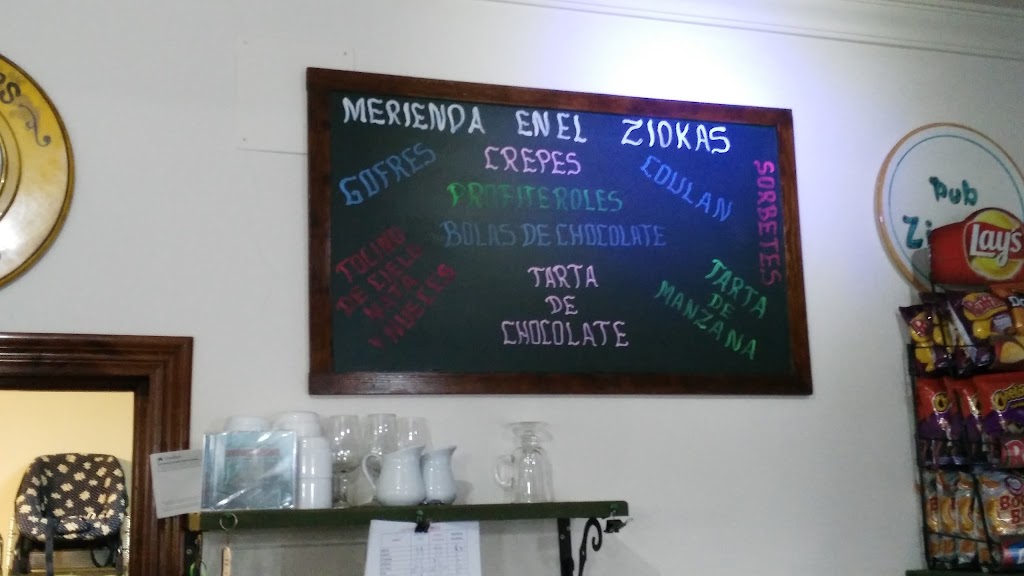 MERIENDA EN EL ZIOKAS
GOFRES
CREPES
COULAN
SORBETES
PROFITEROLES
BOLAS DE CHOCOLATE
TOCINO
DE CIELO
NATA
Y NUECES
TARTA
DE
CHOCOLATE
TARTA
DE
MANZANA
Pub
Zi
Lay's